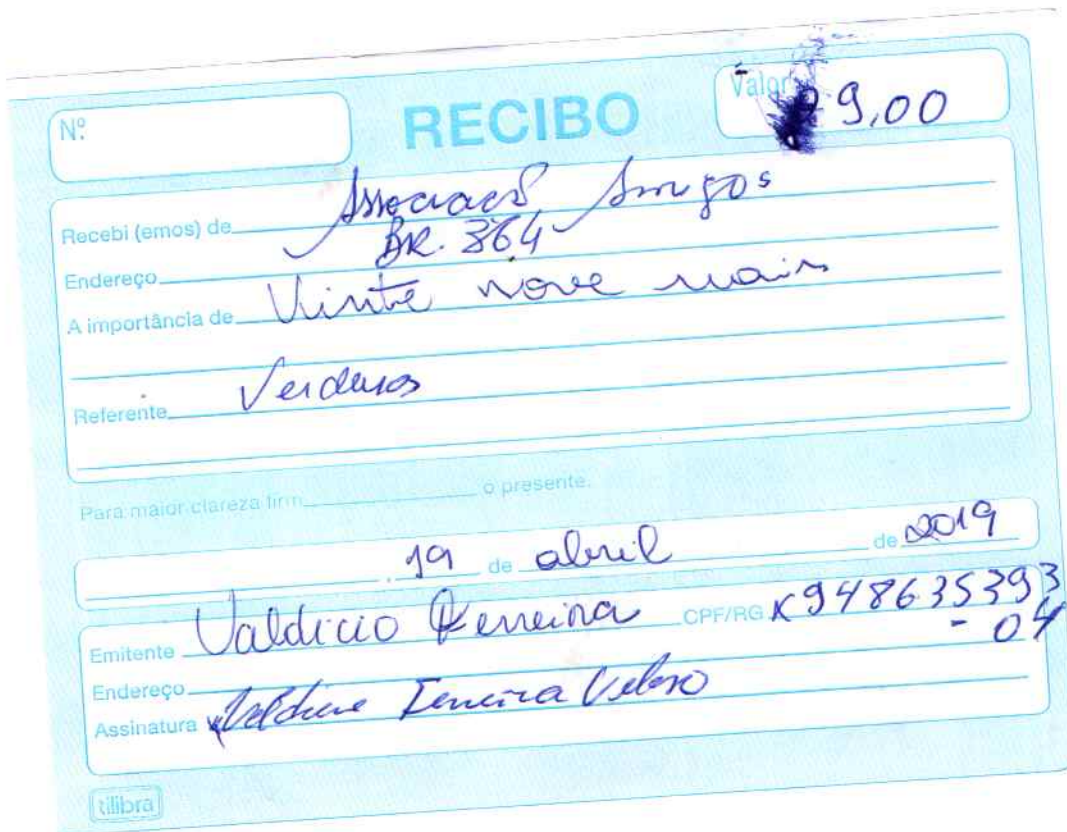 Nº
RECIBO
Valor
9,00
Recebi (emos) de Associacao Amigos
BR. 364
Endereço
A importância de Vinte nove reais
Referente Verduras
Para maior clareza firm o presente.
, 19 de abril de 2019
Emitente Valdicio Ferreira CPF/RG 948635393
- 04
Endereço
Assinatura Ferreira Veloso
tilibra